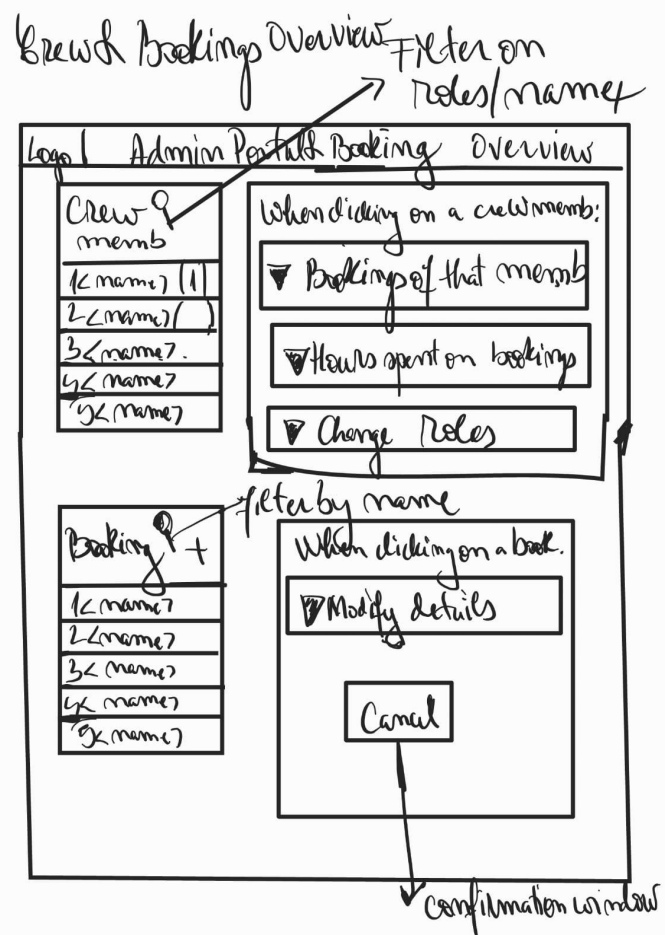 Crew & Bookings Overview
Filter on
roles/name
Logo | Admin Portal & Booking Overview
Crew
memb
1<name> (1)
2<name> ( )
3<name>.
4<name>
5<name>
When clicking on a crew memb:
Bookings of that memb
Hours spent on bookings
Change Roles
filter by name
Booking +
1<name>
2<name>
3<name>
4<name>
5<name>
When clicking on a book.
Modify details
Cancel
confirmation window